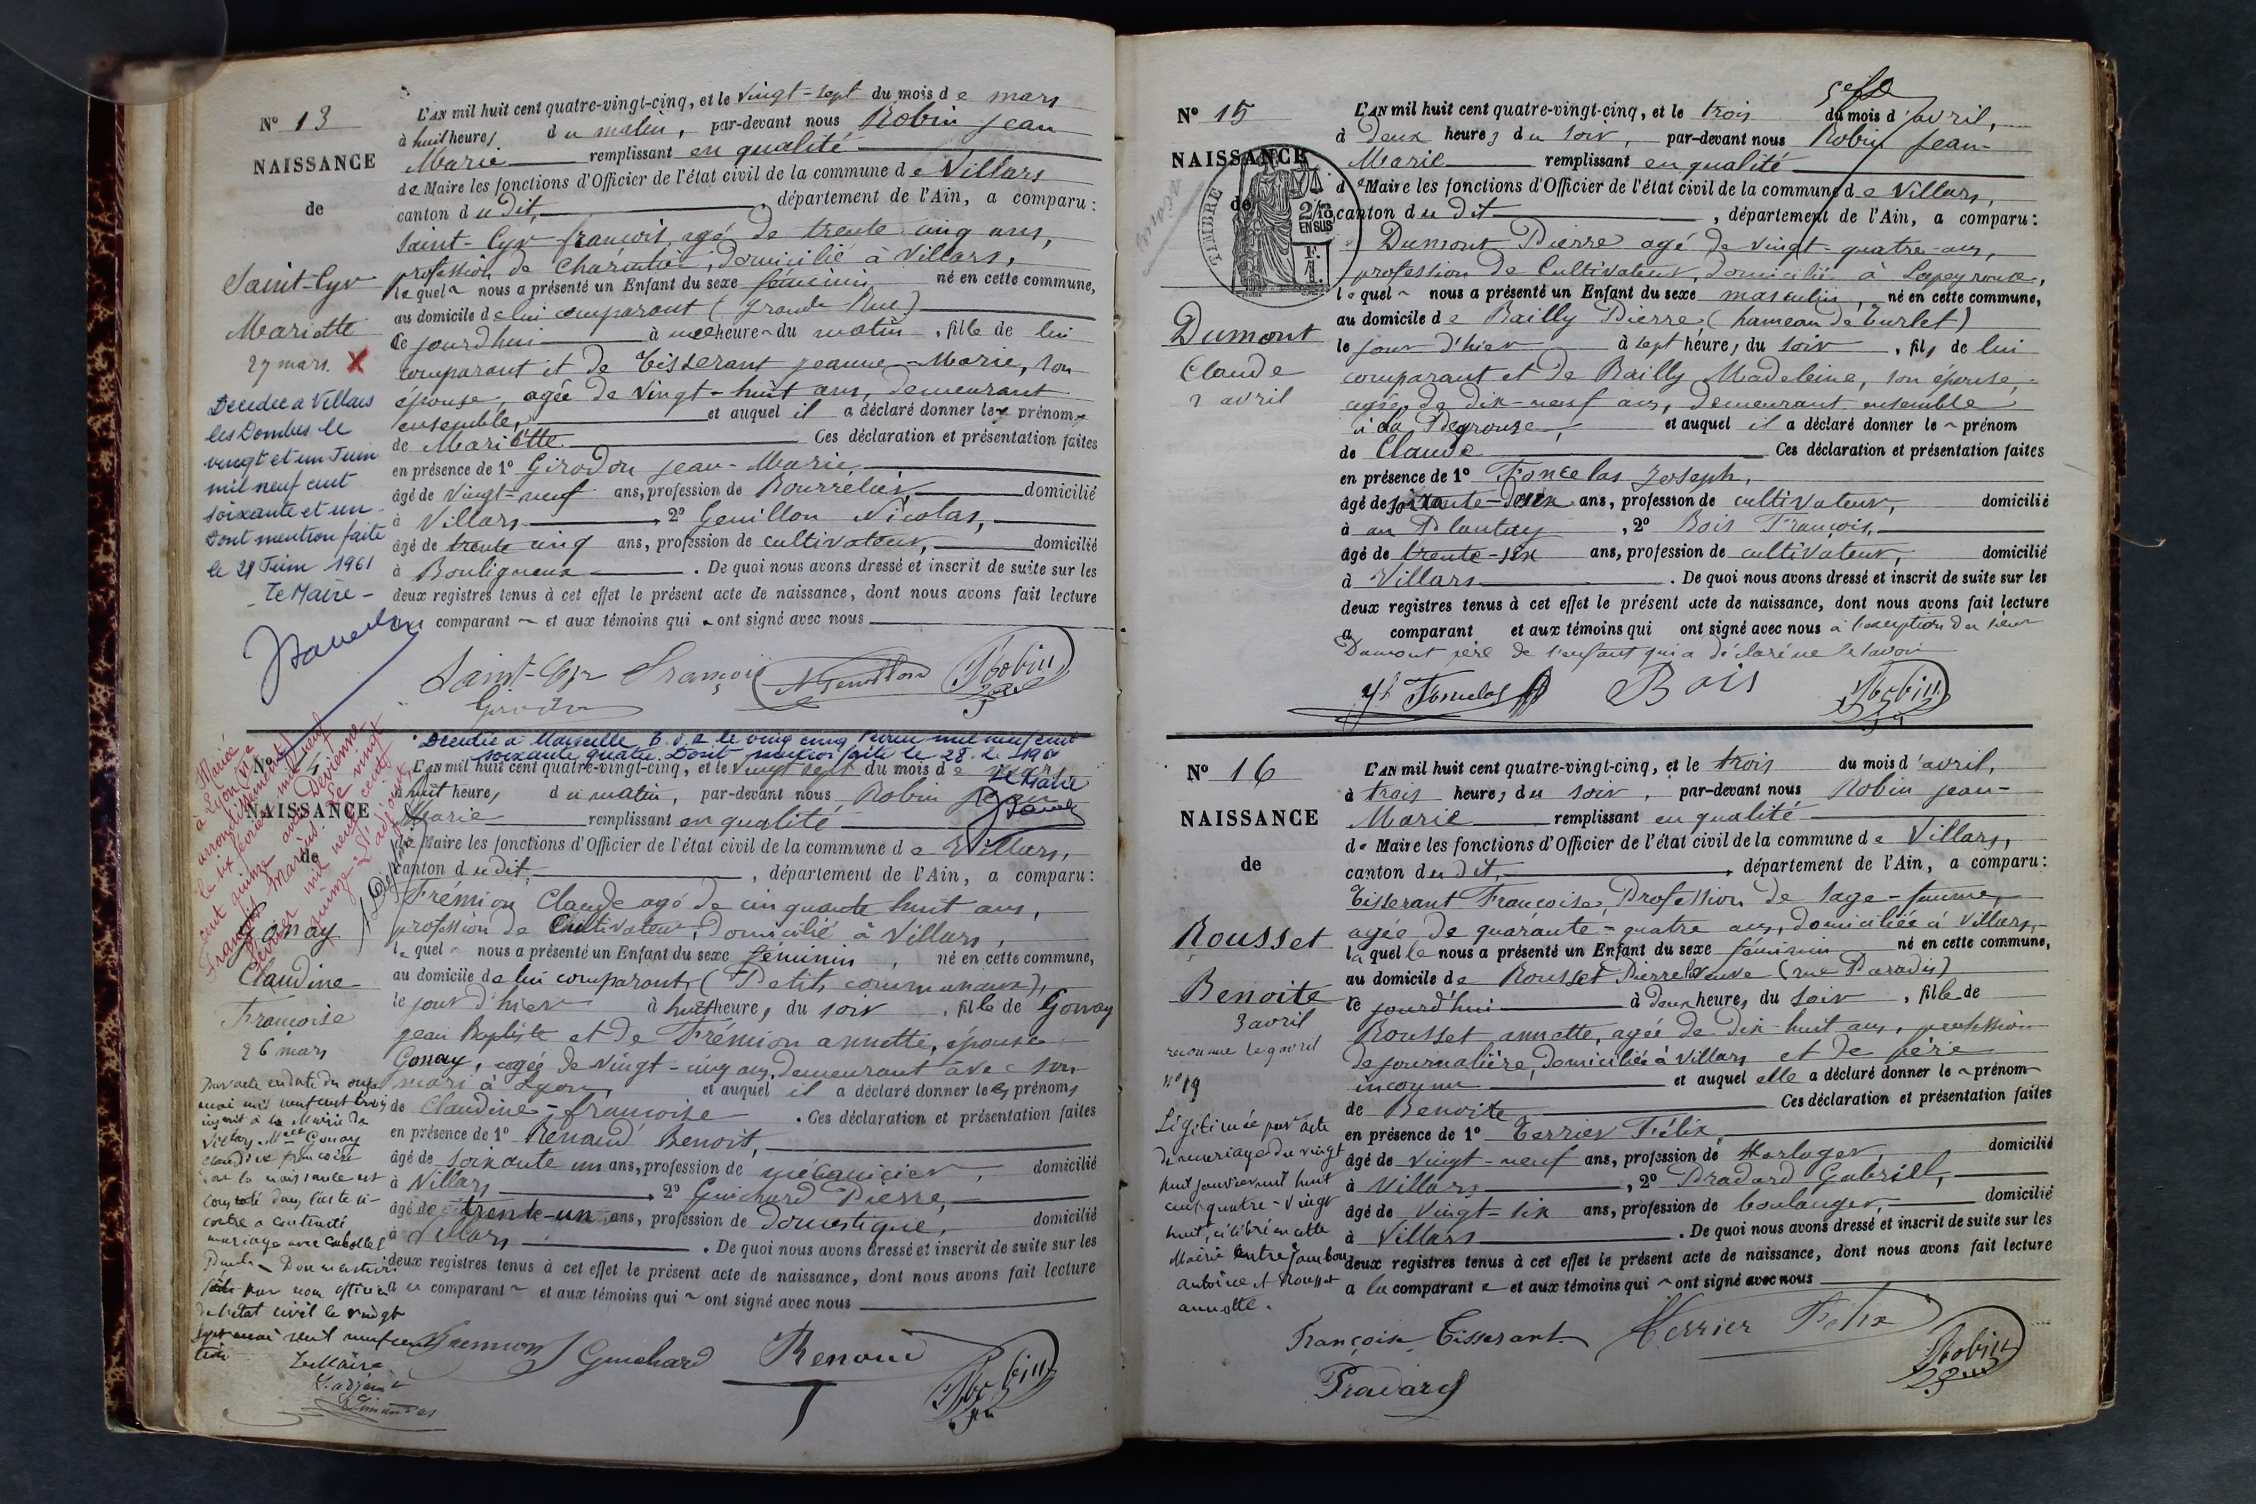 N° 13
NAISSANCE
de
Saint-Cyr
Mariette
27 mars. X
Décédée à Villars
les Dombes le
vingt et un Juin
mil neuf cent
soixante et un
Dont mention faite
le 21 Juin 1961
Le Maire -
L'AN mil huit cent quatre-vingt-cinq, et le vingt-sept du mois de mars
à huit heures du matin, par-devant nous Robin Jean
Marie remplissant en qualité
de Maire les fonctions d'Officier de l'état civil de la commune de Villars
canton du dit, département de l'Ain, a comparu:
Saint-Cyr françois, agé de trente cinq ans,
profession de Charcutier, domicilié à Villars,
lequel nous a présenté un Enfant du sexe féminin né en cette commune,
au domicile de lui comparant (grande Rue)
ce jourd'hui à une heure du matin, fille de lui
comparant et de Tisserant Jeanne-Marie, son
épouse, agée de vingt-huit ans, demeurant
ensemble, et auquel il a déclaré donner le prénom
de Mariette Ces déclaration et présentation faites
en présence de 1° Girodon Jean-Marie,
âgé de vingt-neuf ans, profession de Bourrelier, domicilié
à Villars, 2° Genillon Nicolas,
âgé de trente cinq ans, profession de cultivateur, domicilié
à Bouligneux. De quoi nous avons dressé et inscrit de suite sur les
deux registres tenus à cet effet le présent acte de naissance, dont nous avons fait lecture
au comparant et aux témoins qui ont signé avec nous
Saint-Cyr François Genillon Robin
Girodon
Décédée à Marseille B.d.R le vingt cinq mil neuf cent
soixante quatre. Dont mention faite le 28. 2. 196
Le Maire
Marié
à Lyon
arrondissement)
le six février mil neuf
cent quinze avec Devienne
François Marius. Le vingt
février mil neuf cent
quinze. L'adjoint,
N° 14
NAISSANCE
de
Gonay
Claudine
Françoise
26 mars
Par acte en date du onze
mai mil neuf cent trois
inscrit à la Mairie de
Villars Mlle Gonay
Claudine françoise
dont la naissance est
constaté dans l'acte ci-
contre a contracté
mariage avec
Dont mention
faite par nous officier
de l'état civil le vingt
sept mai mil neuf cent
trois
Le Maire
L'adjoint
L'AN mil huit cent quatre-vingt-cinq, et le vingt sept du mois de mars
à huit heures du matin, par-devant nous Robin Jean
Marie remplissant en qualité
de Maire les fonctions d'Officier de l'état civil de la commune de Villars,
canton du dit, département de l'Ain, a comparu:
Frémion Claude agé de cinquante huit ans,
profession de Cultivateur, domicilié à Villars,
lequel nous a présenté un Enfant du sexe féminin, né en cette commune,
au domicile de lui comparant, (Petits communaux),
le jour d'hier à huit heures du soir, fille de Gonay
Jean Baptiste et de Frémion annette, épouse
Gonay, agée de vingt-cinq ans, demeurant avec son
mari à Lyon, et auquel il a déclaré donner les prénoms
de Claudine-françoise. Ces déclaration et présentation faites
en présence de 1° Renaud Benoit,
âgé de soixante un ans, profession de mécanicien, domicilié
à Villars, 2° Guichard Pierre,
âgé de trente-un ans, profession de domestique, domicilié
à Villars. De quoi nous avons dressé et inscrit de suite sur les
deux registres tenus à cet effet le présent acte de naissance, dont nous avons fait lecture
au comparant et aux témoins qui ont signé avec nous
Fremion Guichard Renaud Robin
N° 15
NAISSANCE
de
TIMBRE
2/10
EN SUS
F.
1
Dumont
Claude
2 avril
L'AN mil huit cent quatre-vingt-cinq, et le trois du mois d'avril,
à deux heures du soir, par-devant nous Robin Jean-
Marie remplissant en qualité
de Maire les fonctions d'Officier de l'état civil de la commune de Villars,
canton du dit, département de l'Ain, a comparu:
Dumont Pierre agé de vingt-quatre ans,
profession de Cultivateur, domicilié à Lapeyrouse,
lequel nous a présenté un Enfant du sexe masculin, né en cette commune,
au domicile de Bailly Pierre (hameau de Turlet)
le jour d'hier à sept heures du soir, fils de lui
comparant et de Bailly Madeleine, son épouse,
agée de dix-neuf ans, demeurant ensemble
à La Peyrouse, et auquel il a déclaré donner le prénom
de Claude Ces déclaration et présentation faites
en présence de 1° Joseph,
âgé de ans, profession de cultivateur, domicilié
à au Plantay, 2° Bois François,
âgé de trente-six ans, profession de cultivateur, domicilié
à Villars. De quoi nous avons dressé et inscrit de suite sur les
deux registres tenus à cet effet le présent acte de naissance, dont nous avons fait lecture
a comparant et aux témoins qui ont signé avec nous à l'exception du sieur
Dumont père de l'enfant qui a déclaré ne le savoir
Bois Robin
N° 16
NAISSANCE
de
Rousset
Benoite
3 avril
reconnue le 9 avril
n° 19
Légitimée par acte
de mariage du vingt
huit janvier mil huit
cent quatre-vingt
huit, célébré en cette
Mairie entre Jambon
antoine et Rousset
annette.
L'AN mil huit cent quatre-vingt-cinq, et le trois du mois d'avril,
à trois heures du soir, par-devant nous Robin Jean-
Marie remplissant en qualité
de Maire les fonctions d'Officier de l'état civil de la commune de Villars,
canton du dit, département de l'Ain, a comparu:
Tisserant Françoise, Profession de sage-femme,
agée de quarante-quatre ans, domiciliée à Villars,
laquelle nous a présenté un Enfant du sexe féminin né en cette commune,
au domicile de Rousset Pierre veuve (rue Paradis)
ce jourd'hui à deux heures du soir, fille de
Rousset annette, agée de dix-huit ans, profession
de journalière, domiciliée à Villars et de père
inconnu et auquel elle a déclaré donner le prénom
de Benoite Ces déclaration et présentation faites
en présence de 1° Terrier Félix
âgé de vingt-neuf ans, profession de Horloger, domicilié
à Villars, 2° Pradard Gabriel,
âgé de vingt-six ans, profession de boulanger, domicilié
à Villars. De quoi nous avons dressé et inscrit de suite sur les
deux registres tenus à cet effet le présent acte de naissance, dont nous avons fait lecture
a la comparante et aux témoins qui ont signé avec nous
Françoise Tisserant Terrier Felix Robin
Pradard